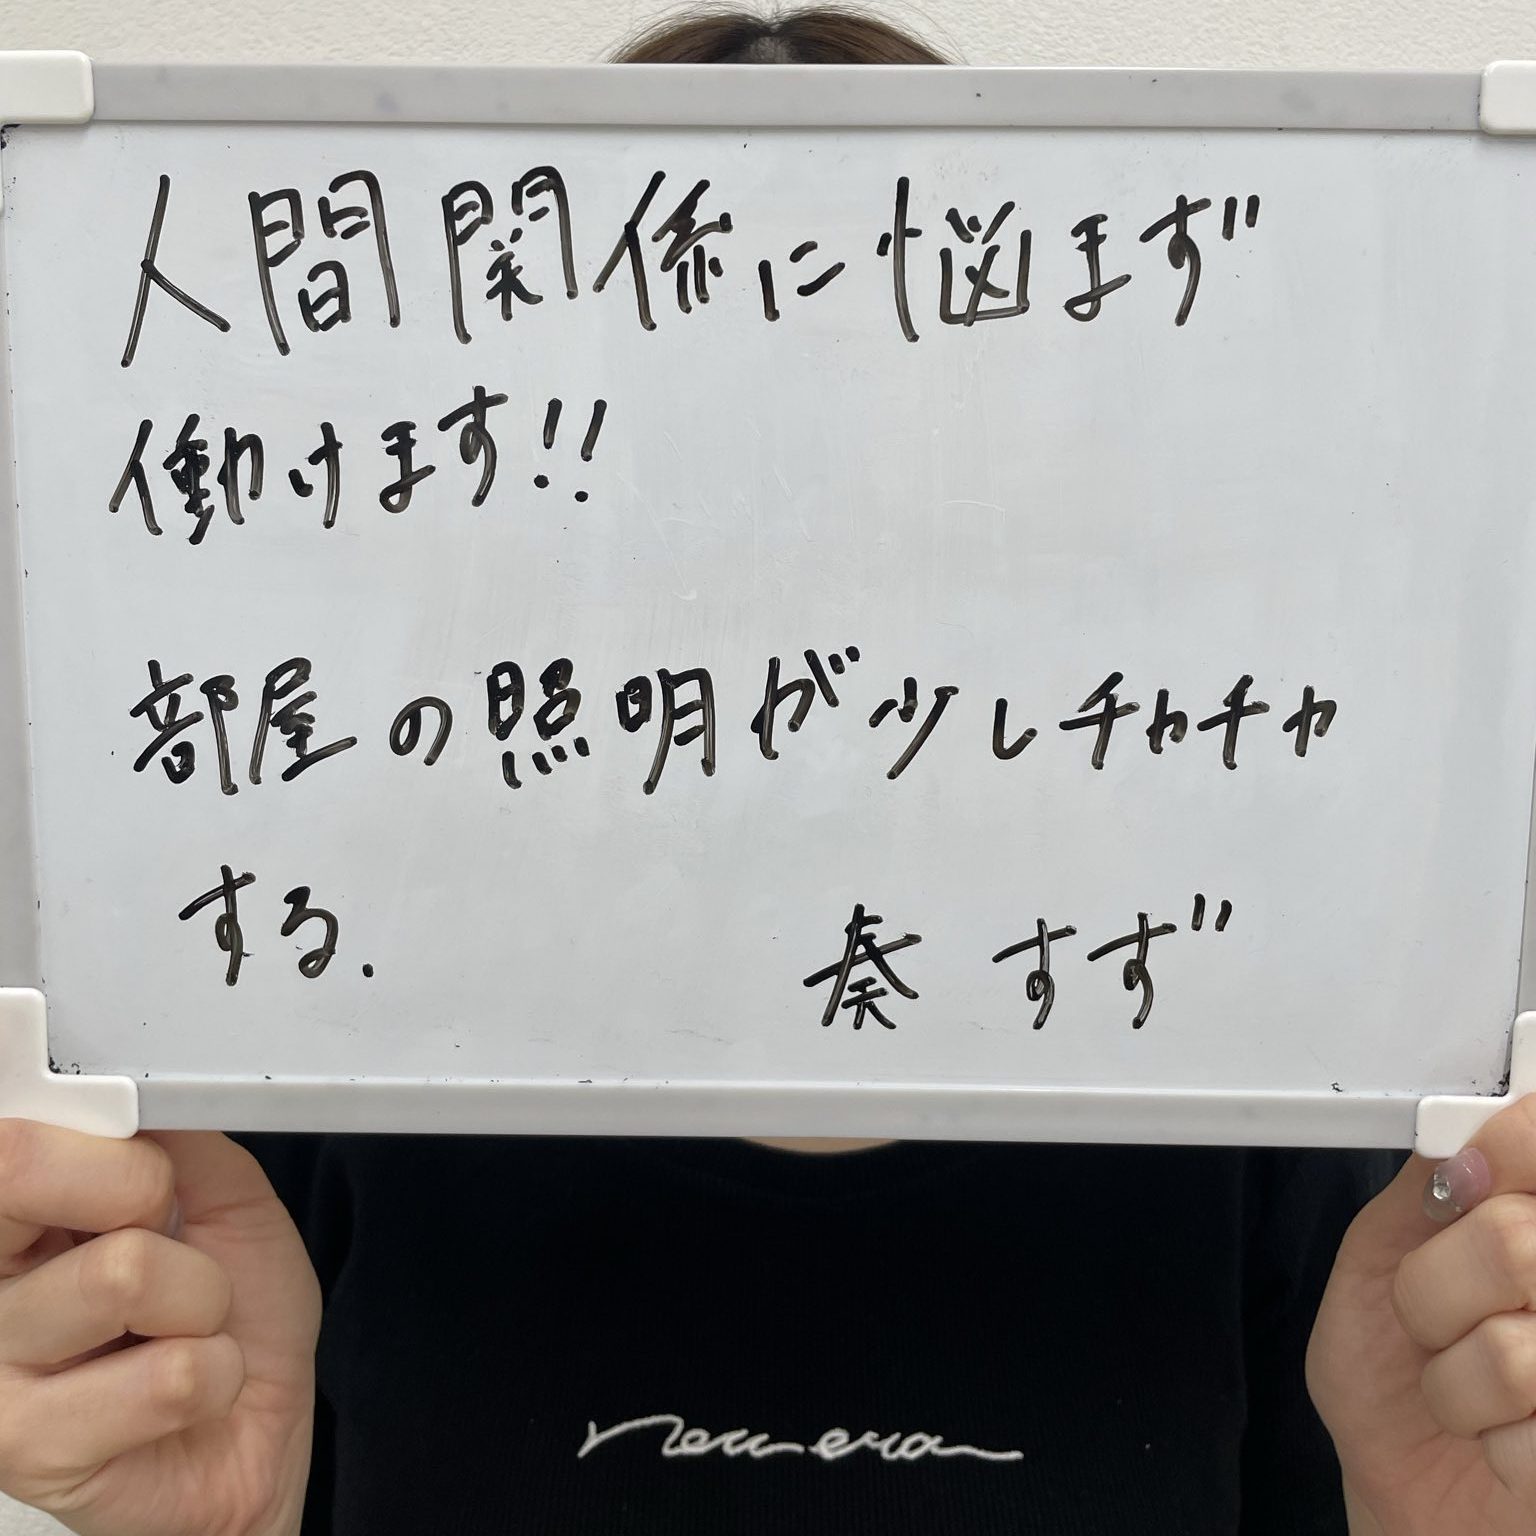 人間関係に悩まず
働けます!!
部屋の照明が少しチカチカ
する.
奏 すず
new era